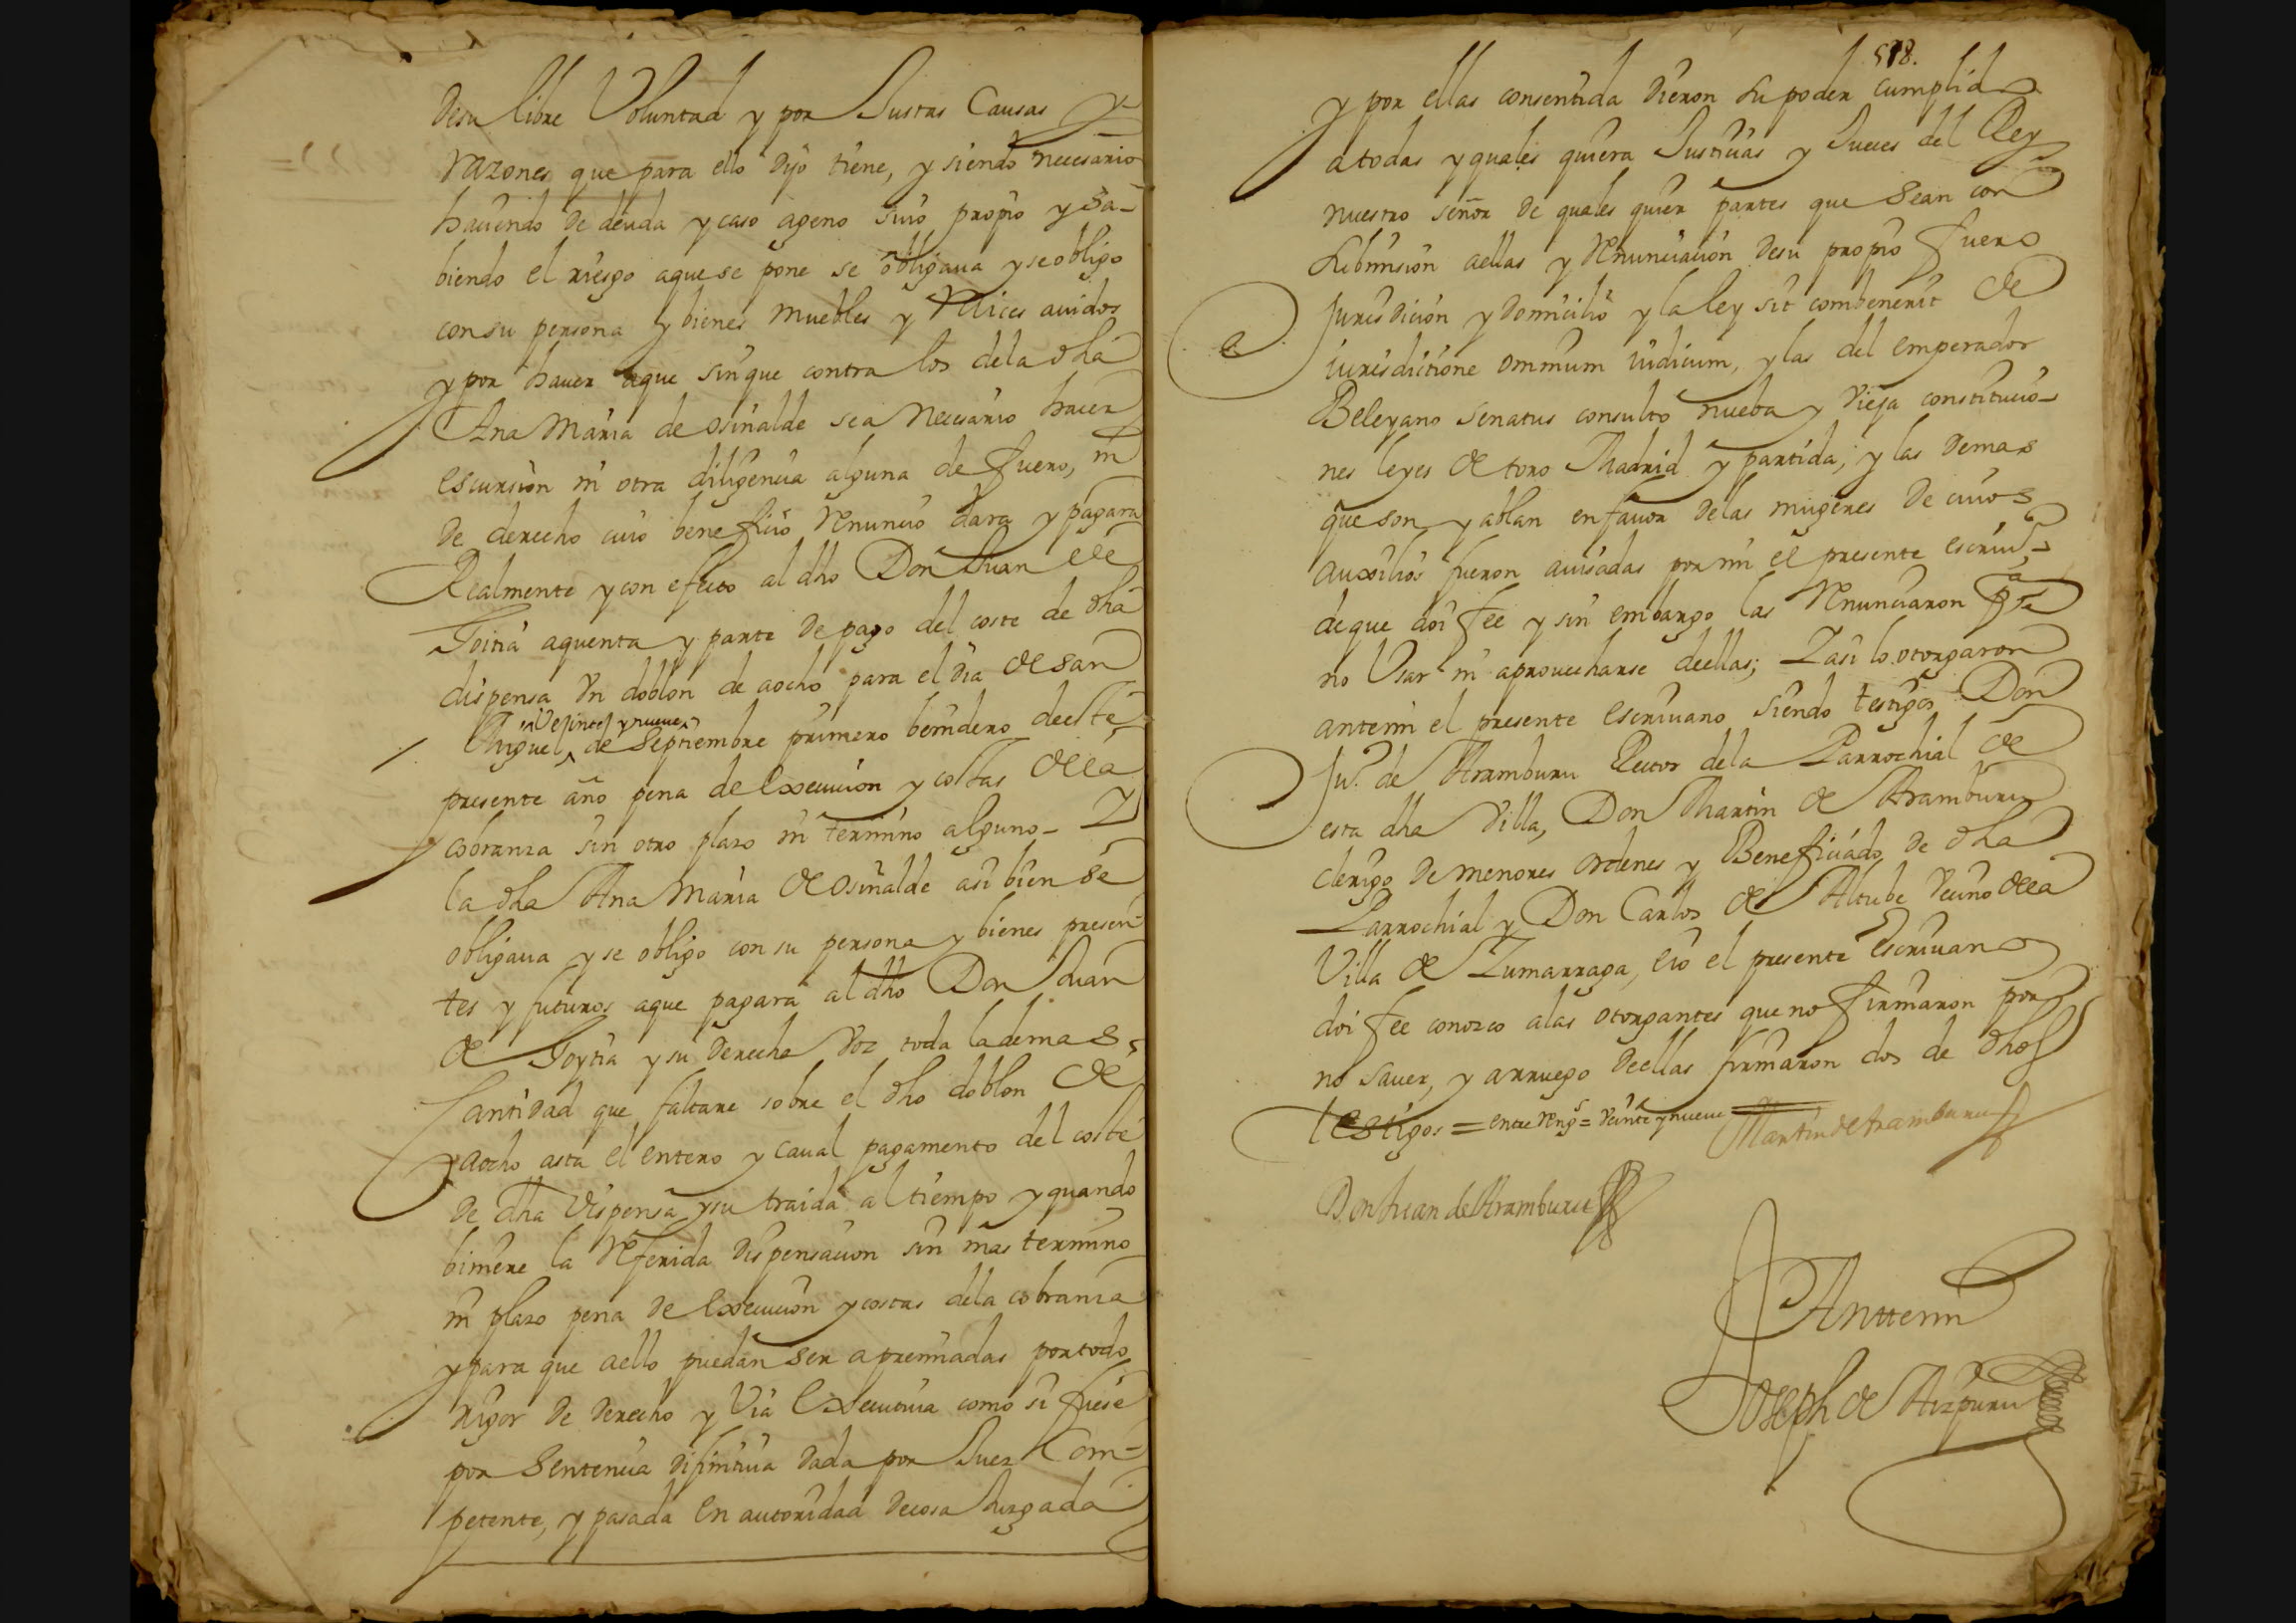 desu libre Voluntad y por Justas Causas y
razones que para ello dijo tiene, y siendo necesario
haciendo de deuda y caso ageno suio propio y sa-
biendo el riesgo aquese pone se obligaua y se obligo
con su persona y bienes muebles y raices auidos
y por hauer aque sin que contra los dela dha
Ana Maria de Osinalde sea necesario hacer
escursion ni otra diligencia alguna de fuero, ni
de derecho cuio beneficio renuncio dara y pagara
Realmente y con efecto al dho Don Juan de
Goitia aquenta y parte de pago del coste de dha
dispensa Un doblon de aocho para el dia de san
veinte y nueue
Miguel de Septiembre primero benidero deeste
presente año pena de execucion y costas dela
cobranza sin otro plazo ni termino alguno- Y
la dha Ana Maria de Osinalde asi bien se
obligaua y se obligo con su persona y bienes presen-
tes y futuros aque pagara al dho Don Juan
de Goytia y su derecho voz toda la demas
Cantidad que faltare sobre el dho doblon de
aocho asta el entero y caual pagamento del coste
de dha dispensa y su traida al tiempo y quando
biniere la referida dispensacion sin mas termino
ni plazo pena de execucion y costas dela cobranza
y para que aello puedan ser apremiadas por todo
rigor de derecho y Via executiua como si fuese
por Sentencia difinitiua dada por Juez Com-
petente, y pasada en autoridad de cosa Juzgada
578.
y por ellas consentida dieron su poder cumplido
a todas y quales quiera Justicias y Jueces del Rey
nuestro señor de quales quier partes que sean con
submision aellas y renunciacion desu propio fuero
Jurisdicion y domicilio y la ley sit combenerit de
iurisdictione omnium iudicum, y las del emperador
Beleyano senatus consulto nueba y vieja constitucio-
nes leyes de toro Madrid y partida, y las demas
que son y ablan en fauor delas mugeres de cuios
auxilios fueron auisadas por mi el presente escriuº
de que doi fee y sin embargo las renunciaron pª
no Usar ni aprouecharse deellas; Y asi lo otorgaron
antemi el presente escriuano siendo testigos Don
Juº de Aramburu Rector dela Parrochial de
esta dha Villa, Don Martin de Aramburu
clerigo de menores ordenes y Beneficiado de dha
Parrochial y Don Carlos de Altube vecino dela
Villa de Zumarraga, eio el presente escriuano
doi fee conozco alas otorgantes que no firmaron por
no sauer, y arruego deellas firmaron dos de dhos
testigos = entre rengs = veinte y nueue
Martin de Aramburu
Don Juan de Aramburu
Anttemi
Joseph de Aizpuru